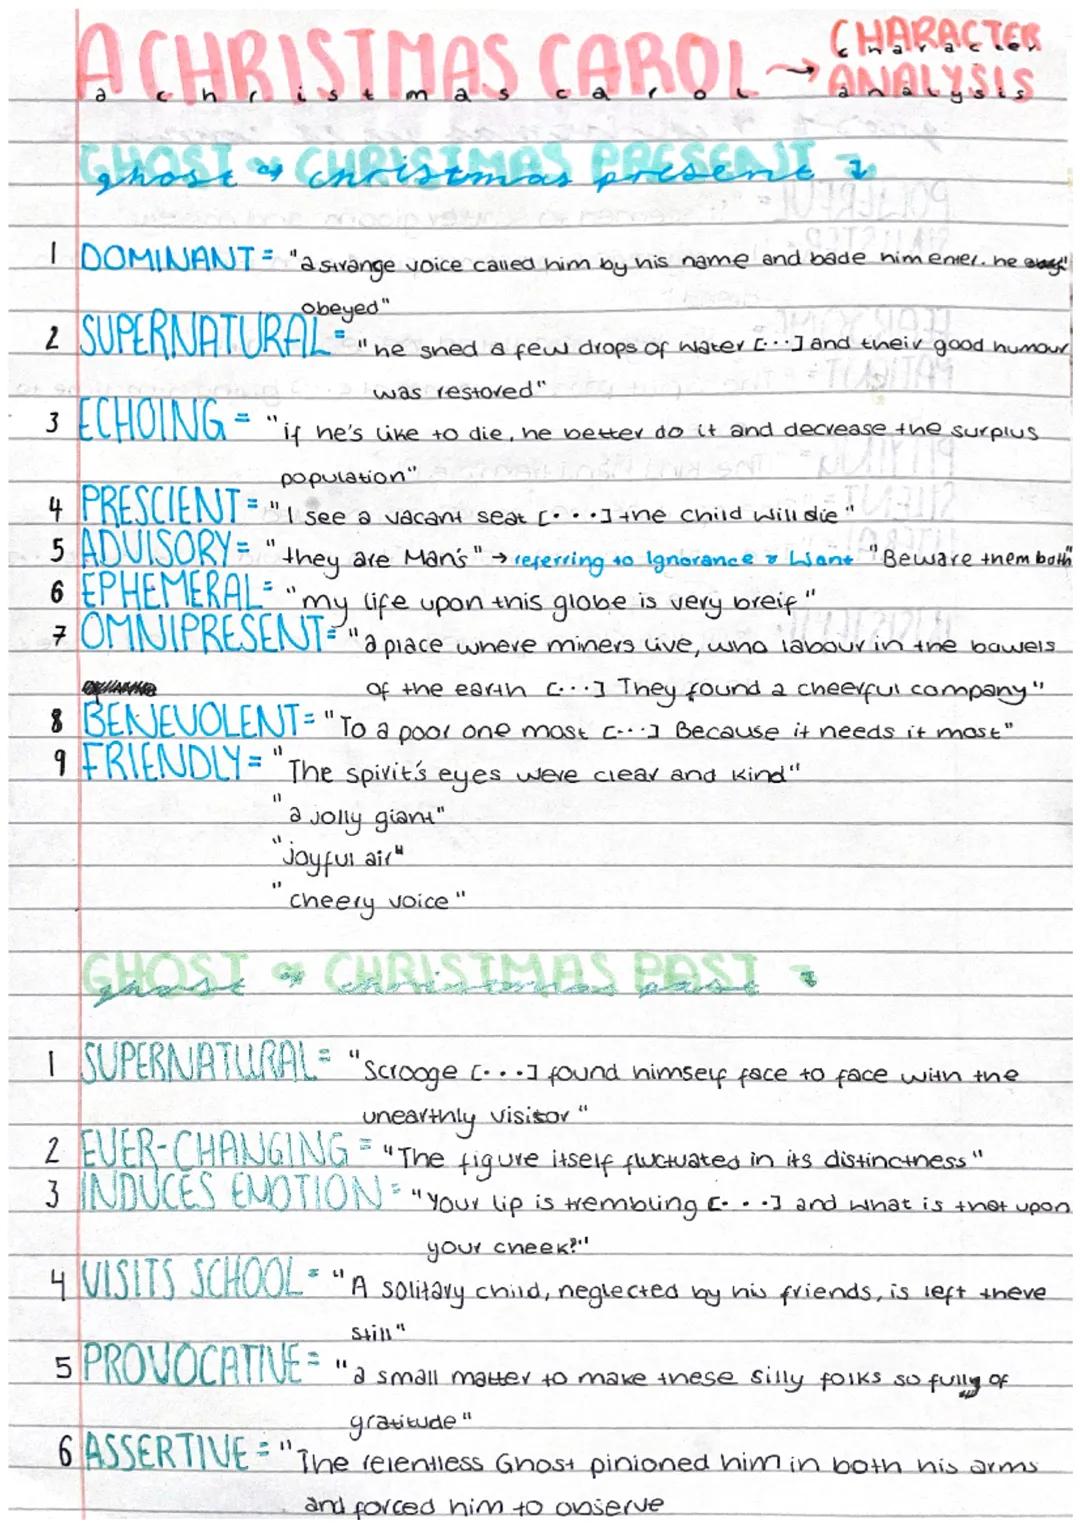 A CHRISTMAS CAROL → CHARACTER
a christmas carol character
ANALYSIS
analysis
GHOST of CHRISTMAS PRESENT
ghost of christmas present
1 DOMINANT = "a strange voice called him by his name and bade him enter. he
obeyed"
2 SUPERNATURAL = "he shed a few drops of water [...] and their good humour
was restored"
3 ECHOING = "if he's like to die, he better do it and decrease the surplus
population"
4 PRESCIENT = "I see a vacant seat [...] the child will die"
5 ADVISORY = "they are Man's" → referring to Ignorance & Want "Beware them both"
6 EPHEMERAL = "my life upon this globe is very breif"
7 OMNIPRESENT = "a place where miners live, who labour in the bowels
of the earth [...] They found a cheerful company"
8 BENEVOLENT = "To a poor one most [...] Because it needs it most"
9 FRIENDLY = "The spirit's eyes were clear and kind"
"a jolly giant"
"joyful air"
"cheery voice"
GHOST of CHRISTMAS PAST
ghost of christmas past
1 SUPERNATURAL = "Scrooge [...] found himself face to face with the
unearthly visitor"
2 EVER-CHANGING = "The figure itself fluctuated in its distinctness"
3 INDUCES EMOTION = "Your lip is trembling [...] and what is that upon
your cheek?"
4 VISITS SCHOOL = "A solitary child, neglected by his friends, is left there
still"
5 PROVOCATIVE = "a small matter to make these silly folks so fully of
gratitude"
6 ASSERTIVE = "The relentless Ghost pinioned him in both his arms
and forced him to observe